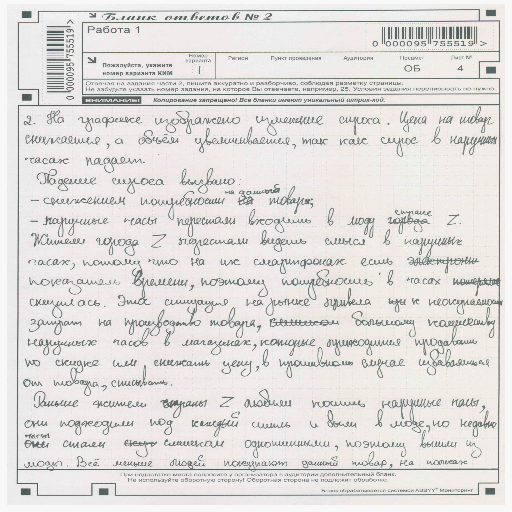 Бланк ответов № 2
Работа 1
0 000095 755519
0 000095 755519
Пожалуйста, укажите номер варианта КИМ
Номер варианта
1
Регион
Пункт проведения
Аудитория
Предмет
ОБ
Лист №
4
Отвечая на задания части 2, пишите аккуратно и разборчиво, соблюдая разметку страницы.
Не забудьте указать номер задания, на которое Вы отвечаете, например, 25. Условия задания переписывать не нужно.
ВНИМАНИЕ! Копирование запрещено! Все бланки имеют уникальный штрих-код.
2. На графике изображено изменение спроса. Цена на товар
снижается, а объём увеличивается, так как спрос в наручных
часах падает.
Падение спроса вызвано:
- снижением потребности на данный товар;
- наручные часы перестали входить в моду стране Z.
Жители города Z перестали видеть смысл в наручных
часах, потому что на их смартфонах есть
показатель времени, поэтому потребность в часах
снизилась. Эта ситуация на рынке привела к неокупаемости
затрат на производство товара, большому количеству
наручных часов в магазинах, которые приходится продавать
по скидке или снижать цену, в противном случае избавляться
от товара, списывать.
Раньше жители страны Z любили носить наручные часы,
они подходили под каждый стиль и были в моде, но недавно
часы стали слишком однотипными, поэтому вышли из
моды. Всё меньше людей покупают данный товар, на полках
При недостатке места попросите у организатора в аудитории дополнительный бланк.
Не используйте оборотную сторону! Оборотная сторона не подлежит обработке.
Бланк обрабатывается системой ABBYY® Мониторинг